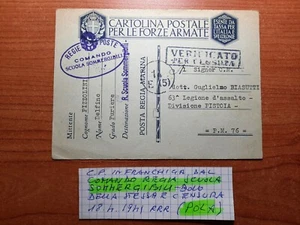 CARTOLINA POSTALE
PER LE FORZE ARMATE
ESENTE DA
TASSA PER
L'ITALIA
REGIE POSTE
COMANDO
SCUOLA SOMMERGIBILI
VERIFICATO
PER CENSURA
Mittente
Cognome
Nome Delfino
Grado
Destinazione R. Scuola Sommergibili
POSTA REGIA MARINA
Signor
Sott. Guglielmo BIASUTTI
63^ Legione d'assalto
Divisione PISTOIA
P.M. 76
C.P. IN FRANCHIGIA DAL
COMANDO REGIA SCUOLA
SOMMERGIBILI - BOLO
DELLA STESSA E CENSURA
18.4.1941 RRR (POLA)